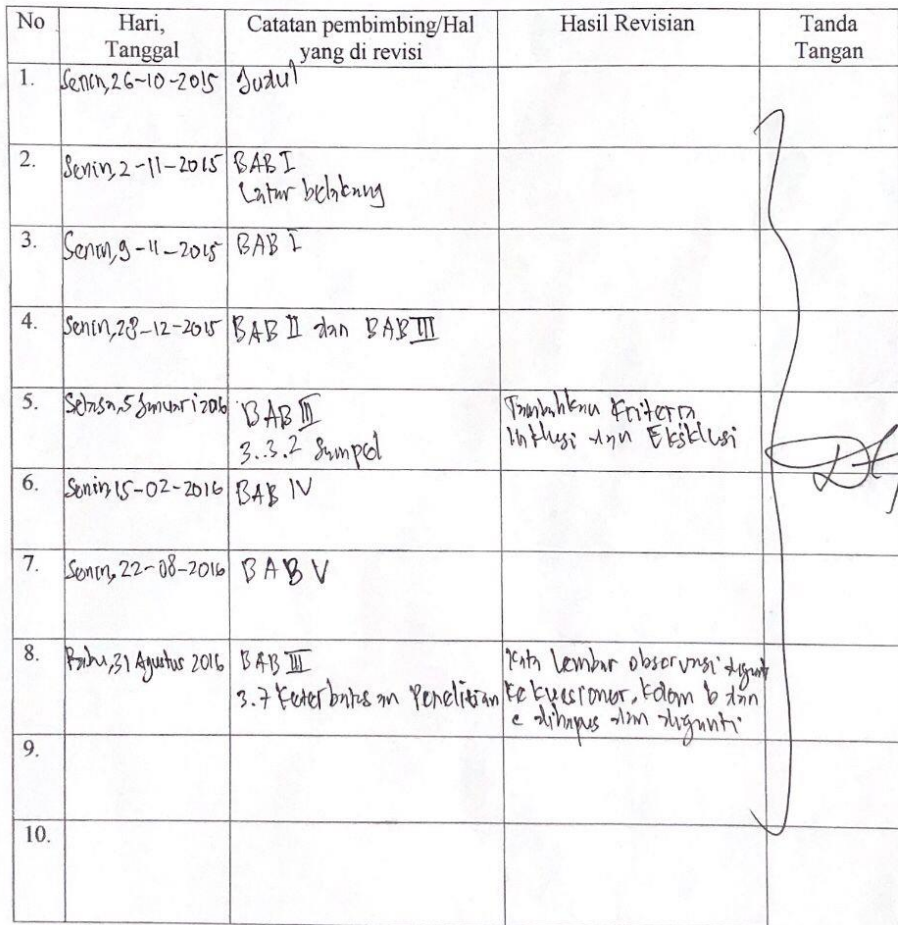 No Hari, Tanggal Catatan pembimbing/Hal yang di revisi Hasil Revisian Tanda Tangan
1. Senin, 26-10-2015 Judul
2. Senin, 2-11-2015 BAB I
Latar belakang
3. Senin, 9-11-2015 BAB I
4. Senin, 28-12-2015 BAB II dan BAB III
5. Selasa, 5 Januari 2016 BAB III Tambahkan Kriteria
3.3.2 Sampel Inklusi dan Eksklusi
6. Senin, 15-02-2016 BAB IV
7. Senin, 22-08-2016 BAB V
8. Rabu, 31 Agustus 2016 BAB III Kata Lembar observasi diganti
3.7 Keterbatasan Penelitian Ke kuesioner, Kolom b dan
c dihapus dan diganti
9.
10.